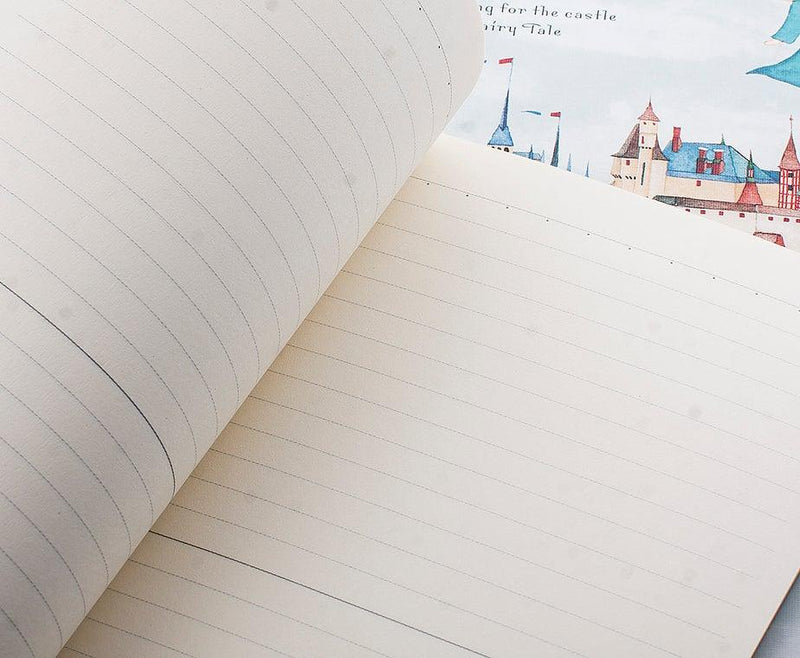 ng for the castle
Fairy Tale